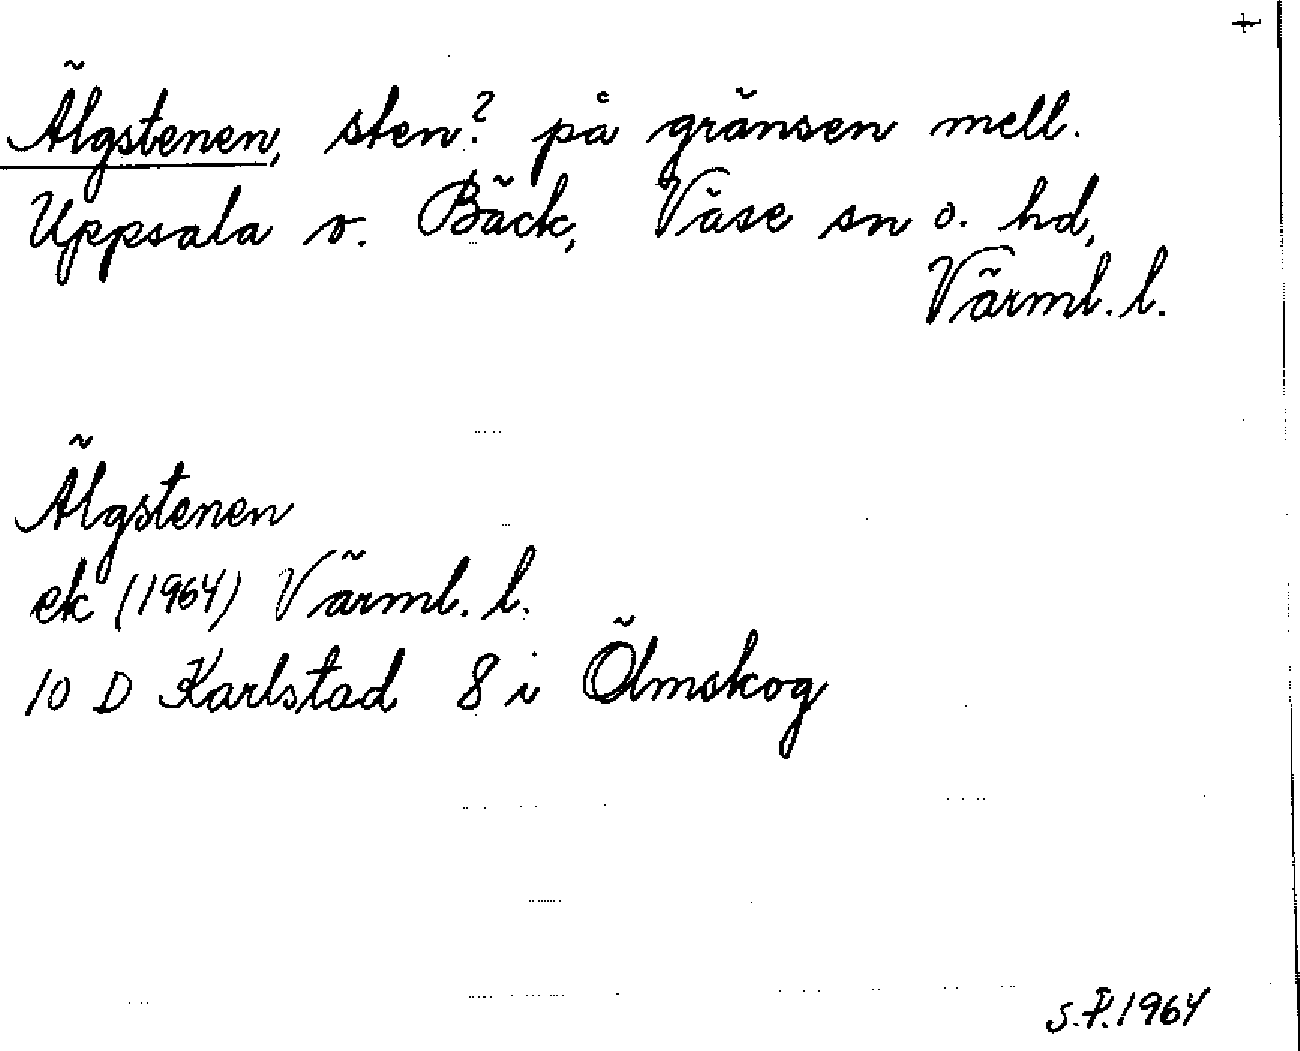 +
Älgstenen, sten? på gränsen mell.
Uppsala o. Bäck, Väse sn o. hd,
Värml. l.
Älgstenen
ek (1964) Värml. l.
10 D Karlstad 8 i Ölmskog
S.F. 1964